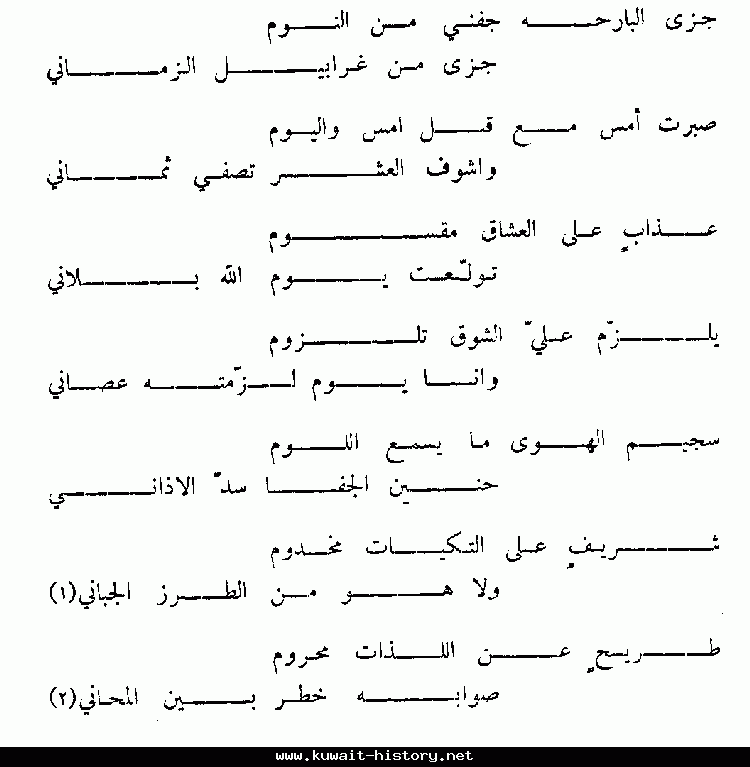 جزى البارحه جفني من النوم
جزى من غرابيل الزماني
صبرت أمس مع قل امس واليوم
واشوف العشر تصفي ثماني
عذابٍ على العشاق مقسوم
تولّعت يوم الله بلاني
يلزّم عليّ الشوق تلزوم
وانا يوم لزّمته عصاني
سجيم الهوى ما يسمع اللوم
حنين الجفا سدّ الاذاني
شريفٍ على التكيات مخدوم
ولا هو من الطرز الجباني(١)
طريحٍ عن اللذات محروم
صوابه خطر بين المحاني(٢)
www.kuwait-history.net